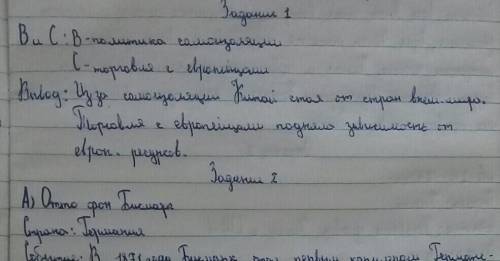 Задание 1
В и С: В-политика самоизоляции
С-торговля с европейцами
Вывод: Из за самоизоляции Китай стал от стран внеш. мира.
Торговля с европейцами подняло зависимость от
европ. ресурсов.
Задание 2
А) Отто фон Бисмарк
Страна: Германия
Событие: В 1871 года Бисмарк стал первым канцлером Германс-